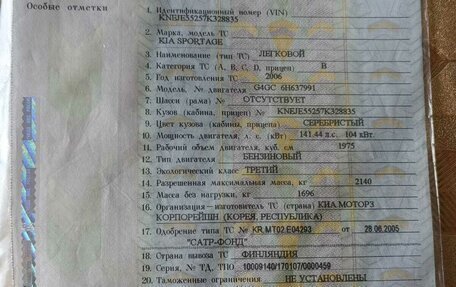 Особые отметки
1. Идентификационный номер (VIN)
KNEJE55257K328835
2. Марка, модель ТС
KIA SPORTAGE
3. Наименование (тип ТС) ЛЕГКОВОЙ
4. Категория ТС (A, B, C, D, прицеп) B
5. Год изготовления ТС 2006
6. Модель, № двигателя G4GC 6H637991
7. Шасси (рама) № ОТСУТСТВУЕТ
8. Кузов (кабина, прицеп) № KNEJE55257K328835
9. Цвет кузова (кабины, прицепа) СЕРЕБРИСТЫЙ
10. Мощность двигателя, л. с. (кВт) 141.44 л.с. 104 кВт.
11. Рабочий объем двигателя, куб. см 1975
12. Тип двигателя БЕНЗИНОВЫЙ
13. Экологический класс ТРЕТИЙ
14. Разрешенная максимальная масса, кг 2140
15. Масса без нагрузки, кг 1696
16. Организация—изготовитель ТС (страна) КИА МОТОРЗ
КОРПОРЕЙШН (КОРЕЯ, РЕСПУБЛИКА)
17. Одобрение типа ТС № KR.MT02.E04293 от 28.06.2005
"САТР-ФОНД"
18. Страна вывоза ТС ФИНЛЯНДИЯ
19. Серия, № ТД, ТПО 10009140/170107/0000459
20. Таможенные ограничения НЕ УСТАНОВЛЕНЫ